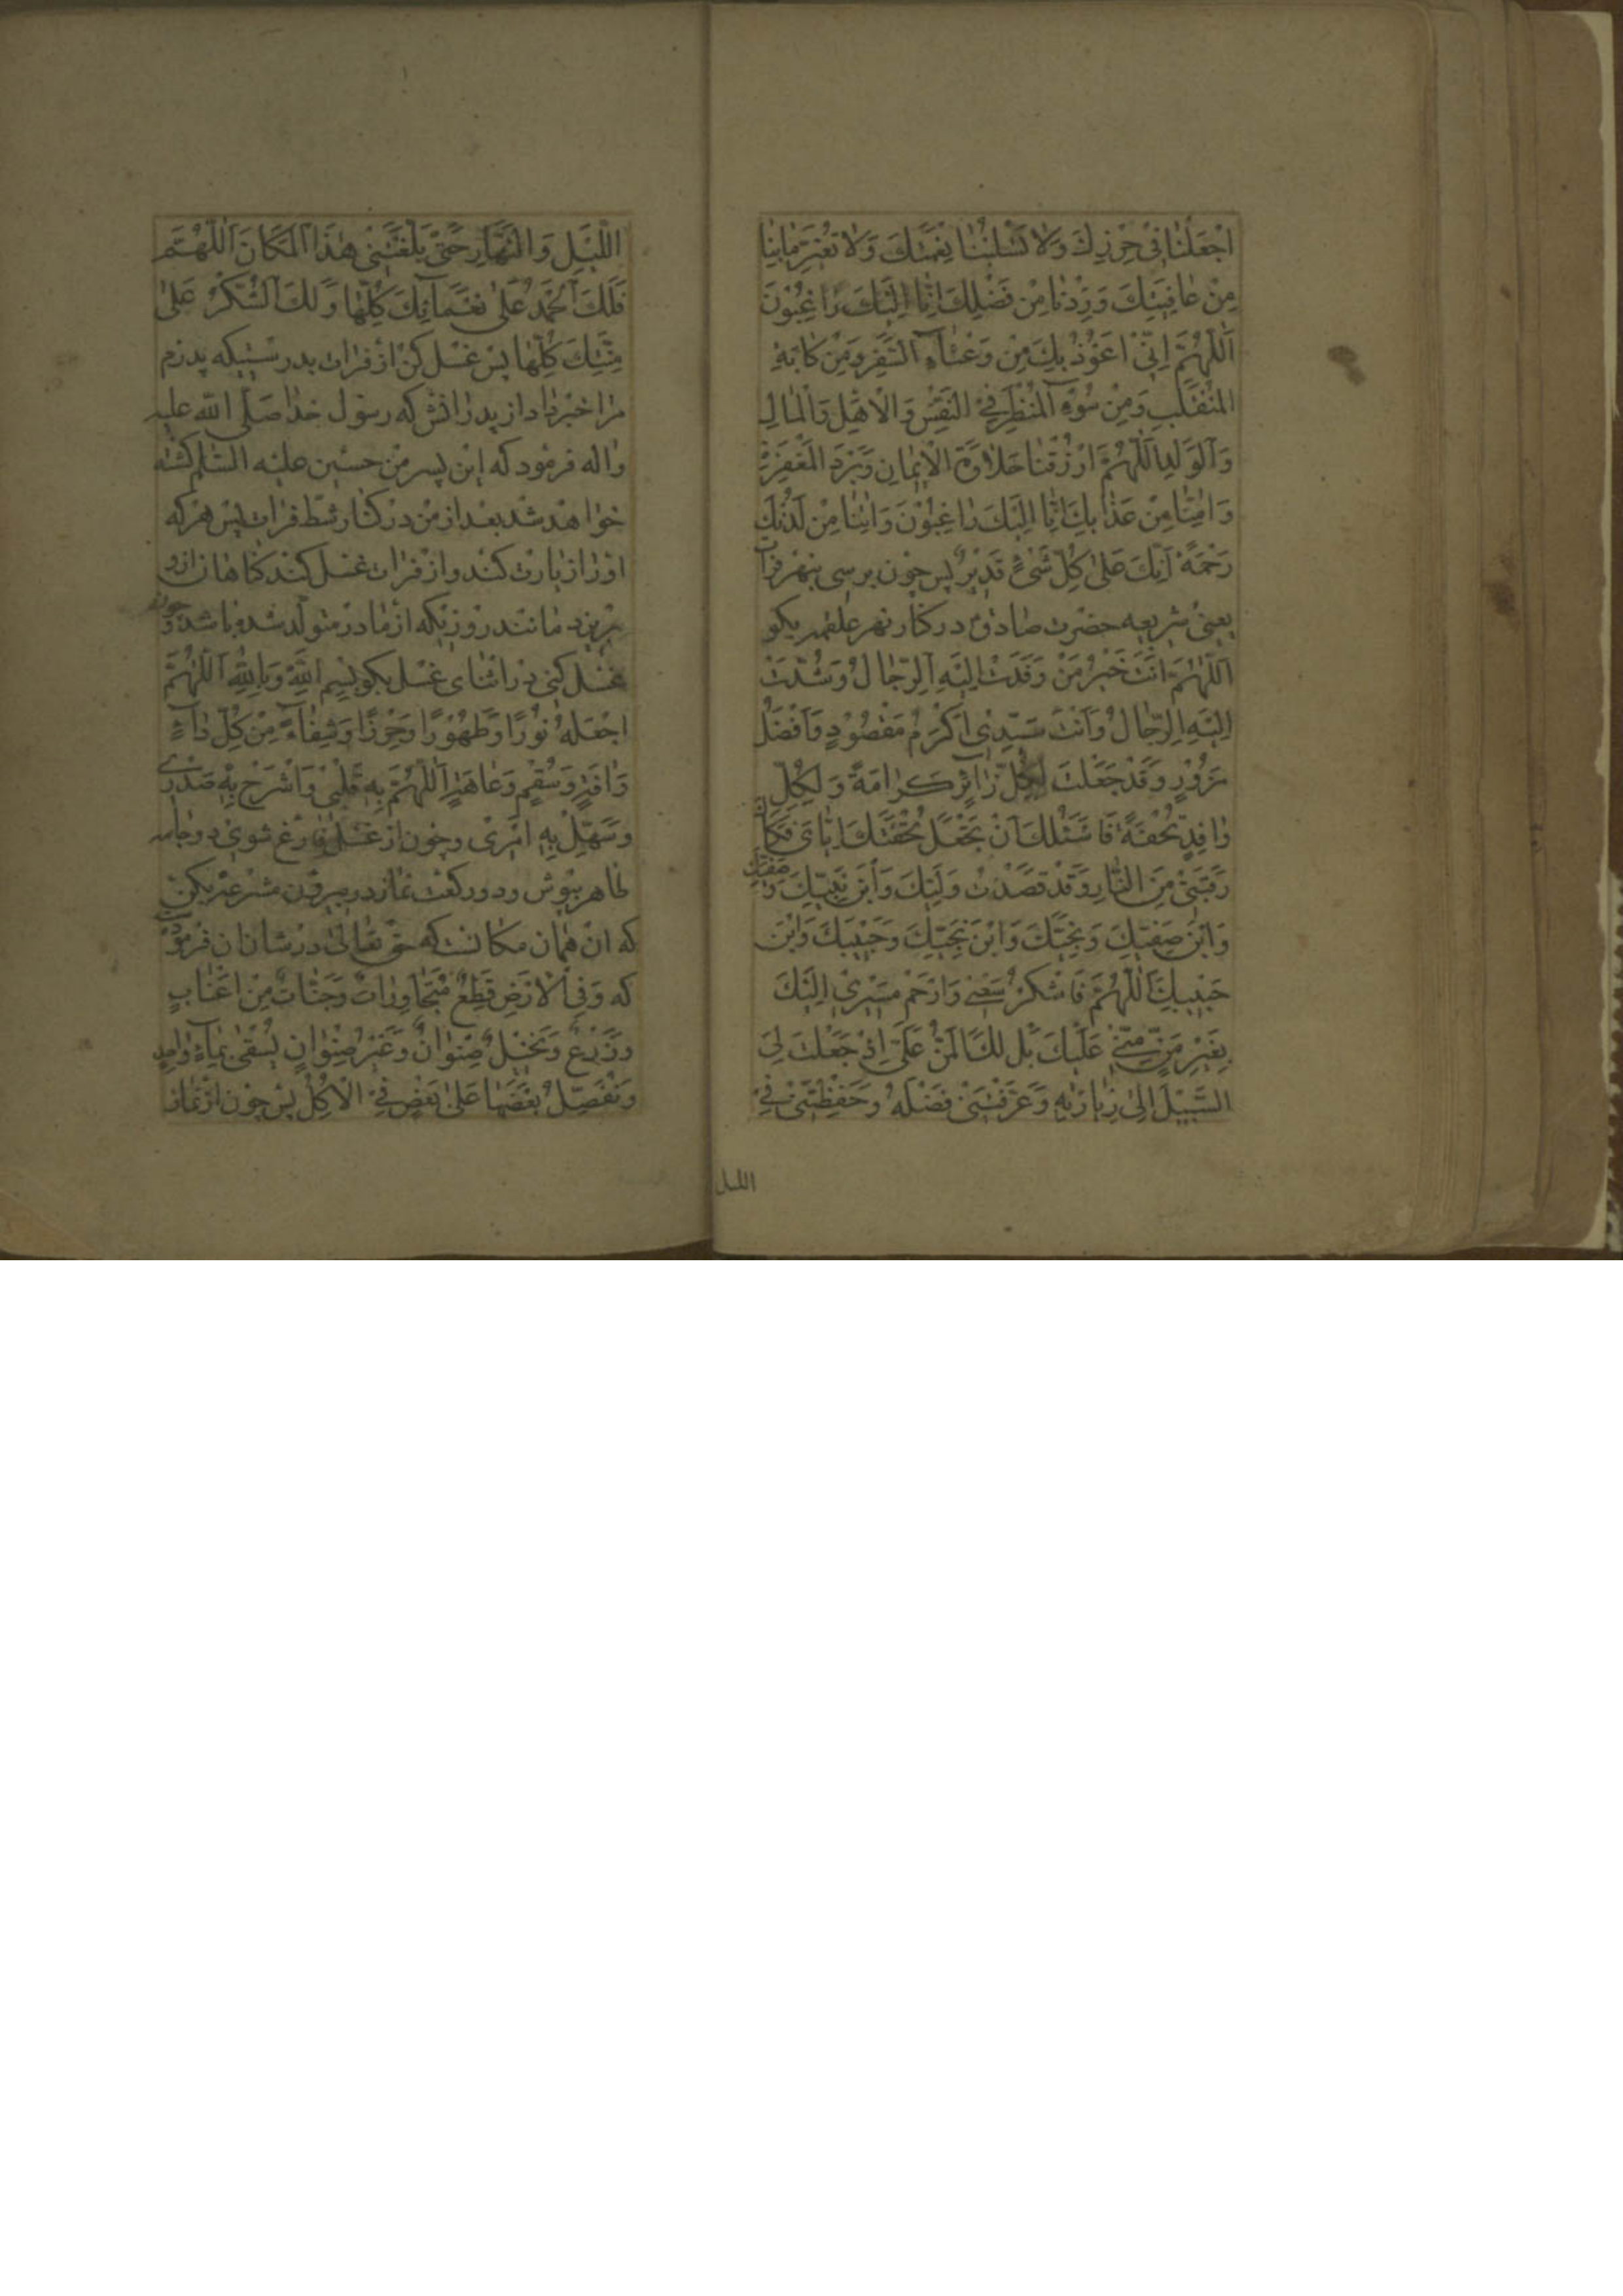 اجْعَلْنا فِیْ حِرْزِكَ وَلا تَسْلُبْنا نِعْمَتَكَ وَلا تُغَیِّرْ مابِنا
مِنْ عافِیَتِكَ وَزِدْنا مِنْ فَضْلِكَ اِنّا اِلَیْكَ راغِبُوْنَ
اَللّٰهُمَّ اِنّیْ اَعُوْذُ بِكَ مِنْ وَعْثآءِ السَّفَرِ وَمِنْ كابَةِ
الْمُنْقَلَبِ وَمِنْ سُوْءِ الْمَنْظَرِ فِیْ النَّفْسِ وَالْاَهْلِ وَالْمالِ
وَالْوَلَدِ اَللّٰهُمَّ ارْزُقْنا حَلاوَةَ الْاِیْمانِ وَبَرْدَ الْمَغْفِرَةِ
وَامِنّا مِنْ عَذابِكَ اِنّا اِلَیْكَ راغِبُوْنَ وَاتِنا مِنْ لَدُنْكَ
رَحْمَةً اِنَّكَ عَلیٰ كُلِّ شَیْءٍ قَدِیْرٌ پس چون برسی بنهر فرات
یعنی شریعه حضرت صادق در کنار نهر علقمه بکو
اَللّٰهُمَّ اَنْتَ خَیْرُ مَنْ وَفَدَتْ اِلَیْهِ الرِّجالُ وَشُدَّتْ
اِلَیْهِ الرِّحالُ وَاَنْتَ سَیِّدِیْ اَكْرَمُ مَقْصُوْدٍ وَاَفْضَلُ
مَزُوْرٍ وَقَدْ جَعَلْتَ لِكُلِّ زائِرٍ كَرامَةً وَلِكُلِّ
وافِدٍ تُحْفَةً فَاَسْئَلُكَ اَنْ تَجْعَلَ تُحْفَتَكَ اِیّایَ فَكاكَ
رَقَبَتیْ مِنَ النّارِ وَقَدْ قَصَدْتُ وَلِیَّكَ وَابْنَ نَبِیِّكَ وَصَفِیَّكَ
وَابْنَ صَفِیِّكَ وَنَجِیَّكَ وَابْنَ نَجِیِّكَ وَحَبِیْبَكَ وَابْنَ
حَبِیْبِكَ اَللّٰهُمَّ فَاشْكُرْ سَعْیِیْ وَارْحَمْ مَسِیْرِیْ اِلَیْكَ
بِغَیْرِ مَنٍّ مِنّیْ عَلَیْكَ بَلْ لَكَ الْمَنُّ عَلَیَّ اِذْ جَعَلْتَ لِیَ
السَّبِیْلَ اِلیٰ زِیارَتِهِ وَعَرَّفْتَنیْ فَضْلَهُ وَحَفِظْتَنیْ فِیْ
اللیل
اللَّیْلِ وَالنَّهارِ حَتّیٰ بَلَّغْتَنیْ هٰذَا الْمَكانَ اَللّٰهُمَّ
فَلَكَ الْحَمْدُ عَلیٰ نَعْمآئِكَ كُلِّها وَلَكَ الشُّكْرُ عَلیٰ
مِنَنِكَ كُلِّها پس غسل کن از فرات بدرستیکه پدرم
مرا خبر داد از پدرانش که رسول خدا صلّی الله علیه
واله فرمود که این پسر من حسین علیه السّلم کشته
خواهد شد بعد از من در کنار شط فرات پس هر که
اورا زیارت کند و از فرات غسل کند کناهان ازو
بریزد مانند روزیکه از مادر متولّد شده باشد و چون
غسل کنی در اثنای غسل بکو بِسْمِ اللّٰهِ وَبِاللّٰهِ اَللّٰهُمَّ
اجْعَلْهُ نُوْرًا وَطَهُوْرًا وَحِرْزًا وَشِفآءً مِنْ كُلِّ دآءٍ
وَافَةٍ وَسُقْمٍ وَعاهَةٍ اَللّٰهُمَّ بِهِ قَلْبیْ وَاشْرَحْ بِهِ صَدْرِیْ
وَسَهِّلْ بِهِ اَمْرِیْ وچون از غسل فارغ شوی دو جامه
طاهر بپوش و دو رکعت نماز در بیرون مشرعه بکن
که ان همان مکانست که حق تعالیٰ در شان ان فرموده
که وَفِی الْاَرْضِ قِطَعٌ مُتَجاوِراتٌ وَجَنّاتٌ مِنْ اَعْنابٍ
وَزَرْعٌ وَنَخِیْلٌ صِنْوانٌ وَغَیْرُ صِنْوانٍ یُسْقیٰ بِمآءٍ واحِدٍ
وَنُفَضِّلُ بَعْضَها عَلیٰ بَعْضٍ فِیْ الْاُكُلِ پس چون از نماز